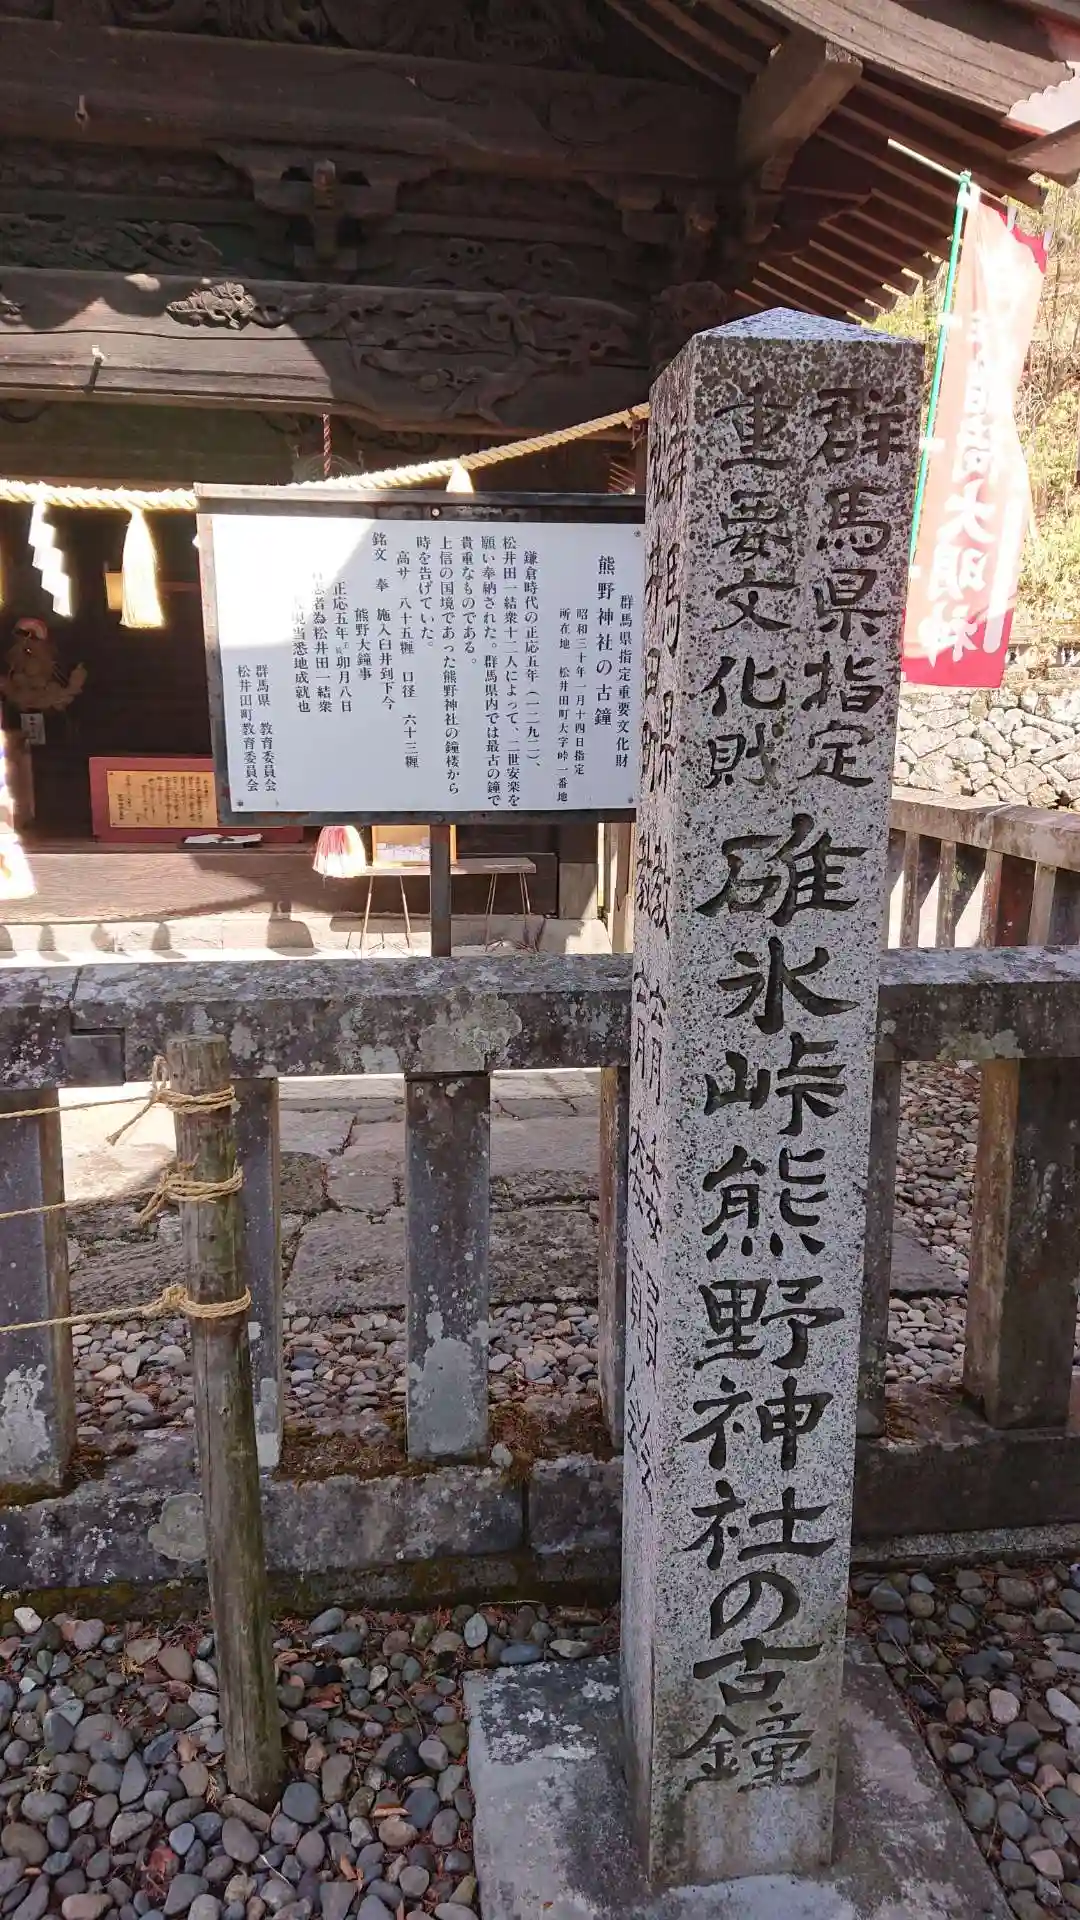 群馬県指定
重要文化財
碓氷峠熊野神社の古鐘
群馬県指定重要文化財
熊野神社の古鐘
昭和三十年一月十四日指定
所在地 松井田町大字峠一番地
鎌倉時代の正応五年(一二九二)、
松井田一結衆十二人によって、二世安楽を
願い奉納された。群馬県内では最古の鐘で
貴重なものである。
上信の国境であった熊野神社の鐘楼から
時を告げていた。
高サ 八十五糎 口径 六十三糎
銘文 奉 施入臼井到下今
熊野大鐘事
正応五年 卯月八日
者為松井田一結衆
現当悉地成就也
群馬県 教育委員会
松井田町教育委員会
大明神